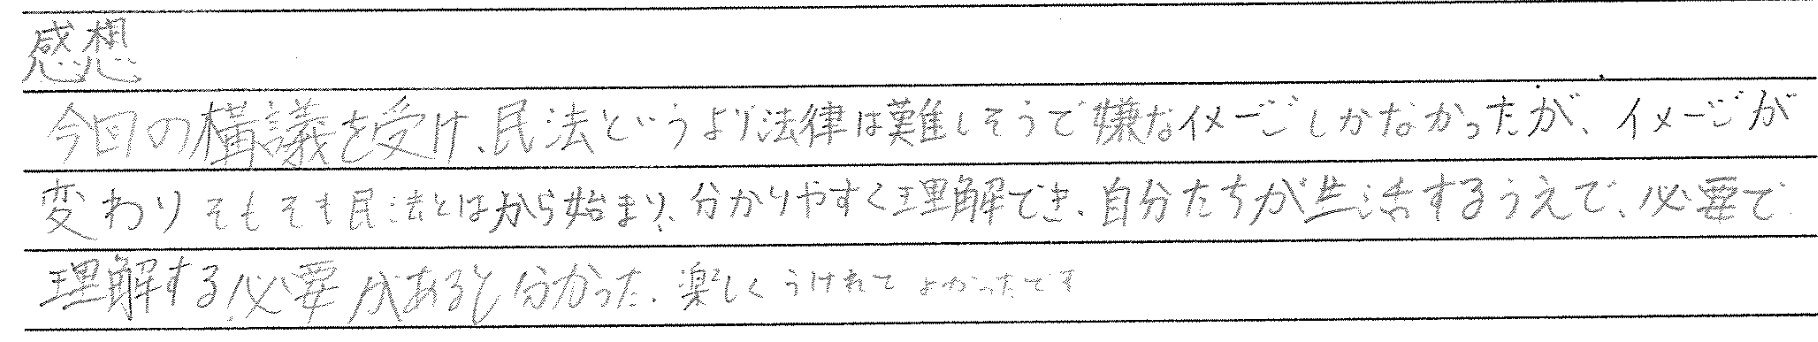 感想
今回の構議を受け、民法というより法律は難しそうで嫌なイメージしかなかったが、イメージが
変わりそもそも民法とはから始まり、分かりやすく理解でき、自分たちが生活するうえで、必要で
理解する必要があると分かった。楽しくうけれてよかったです